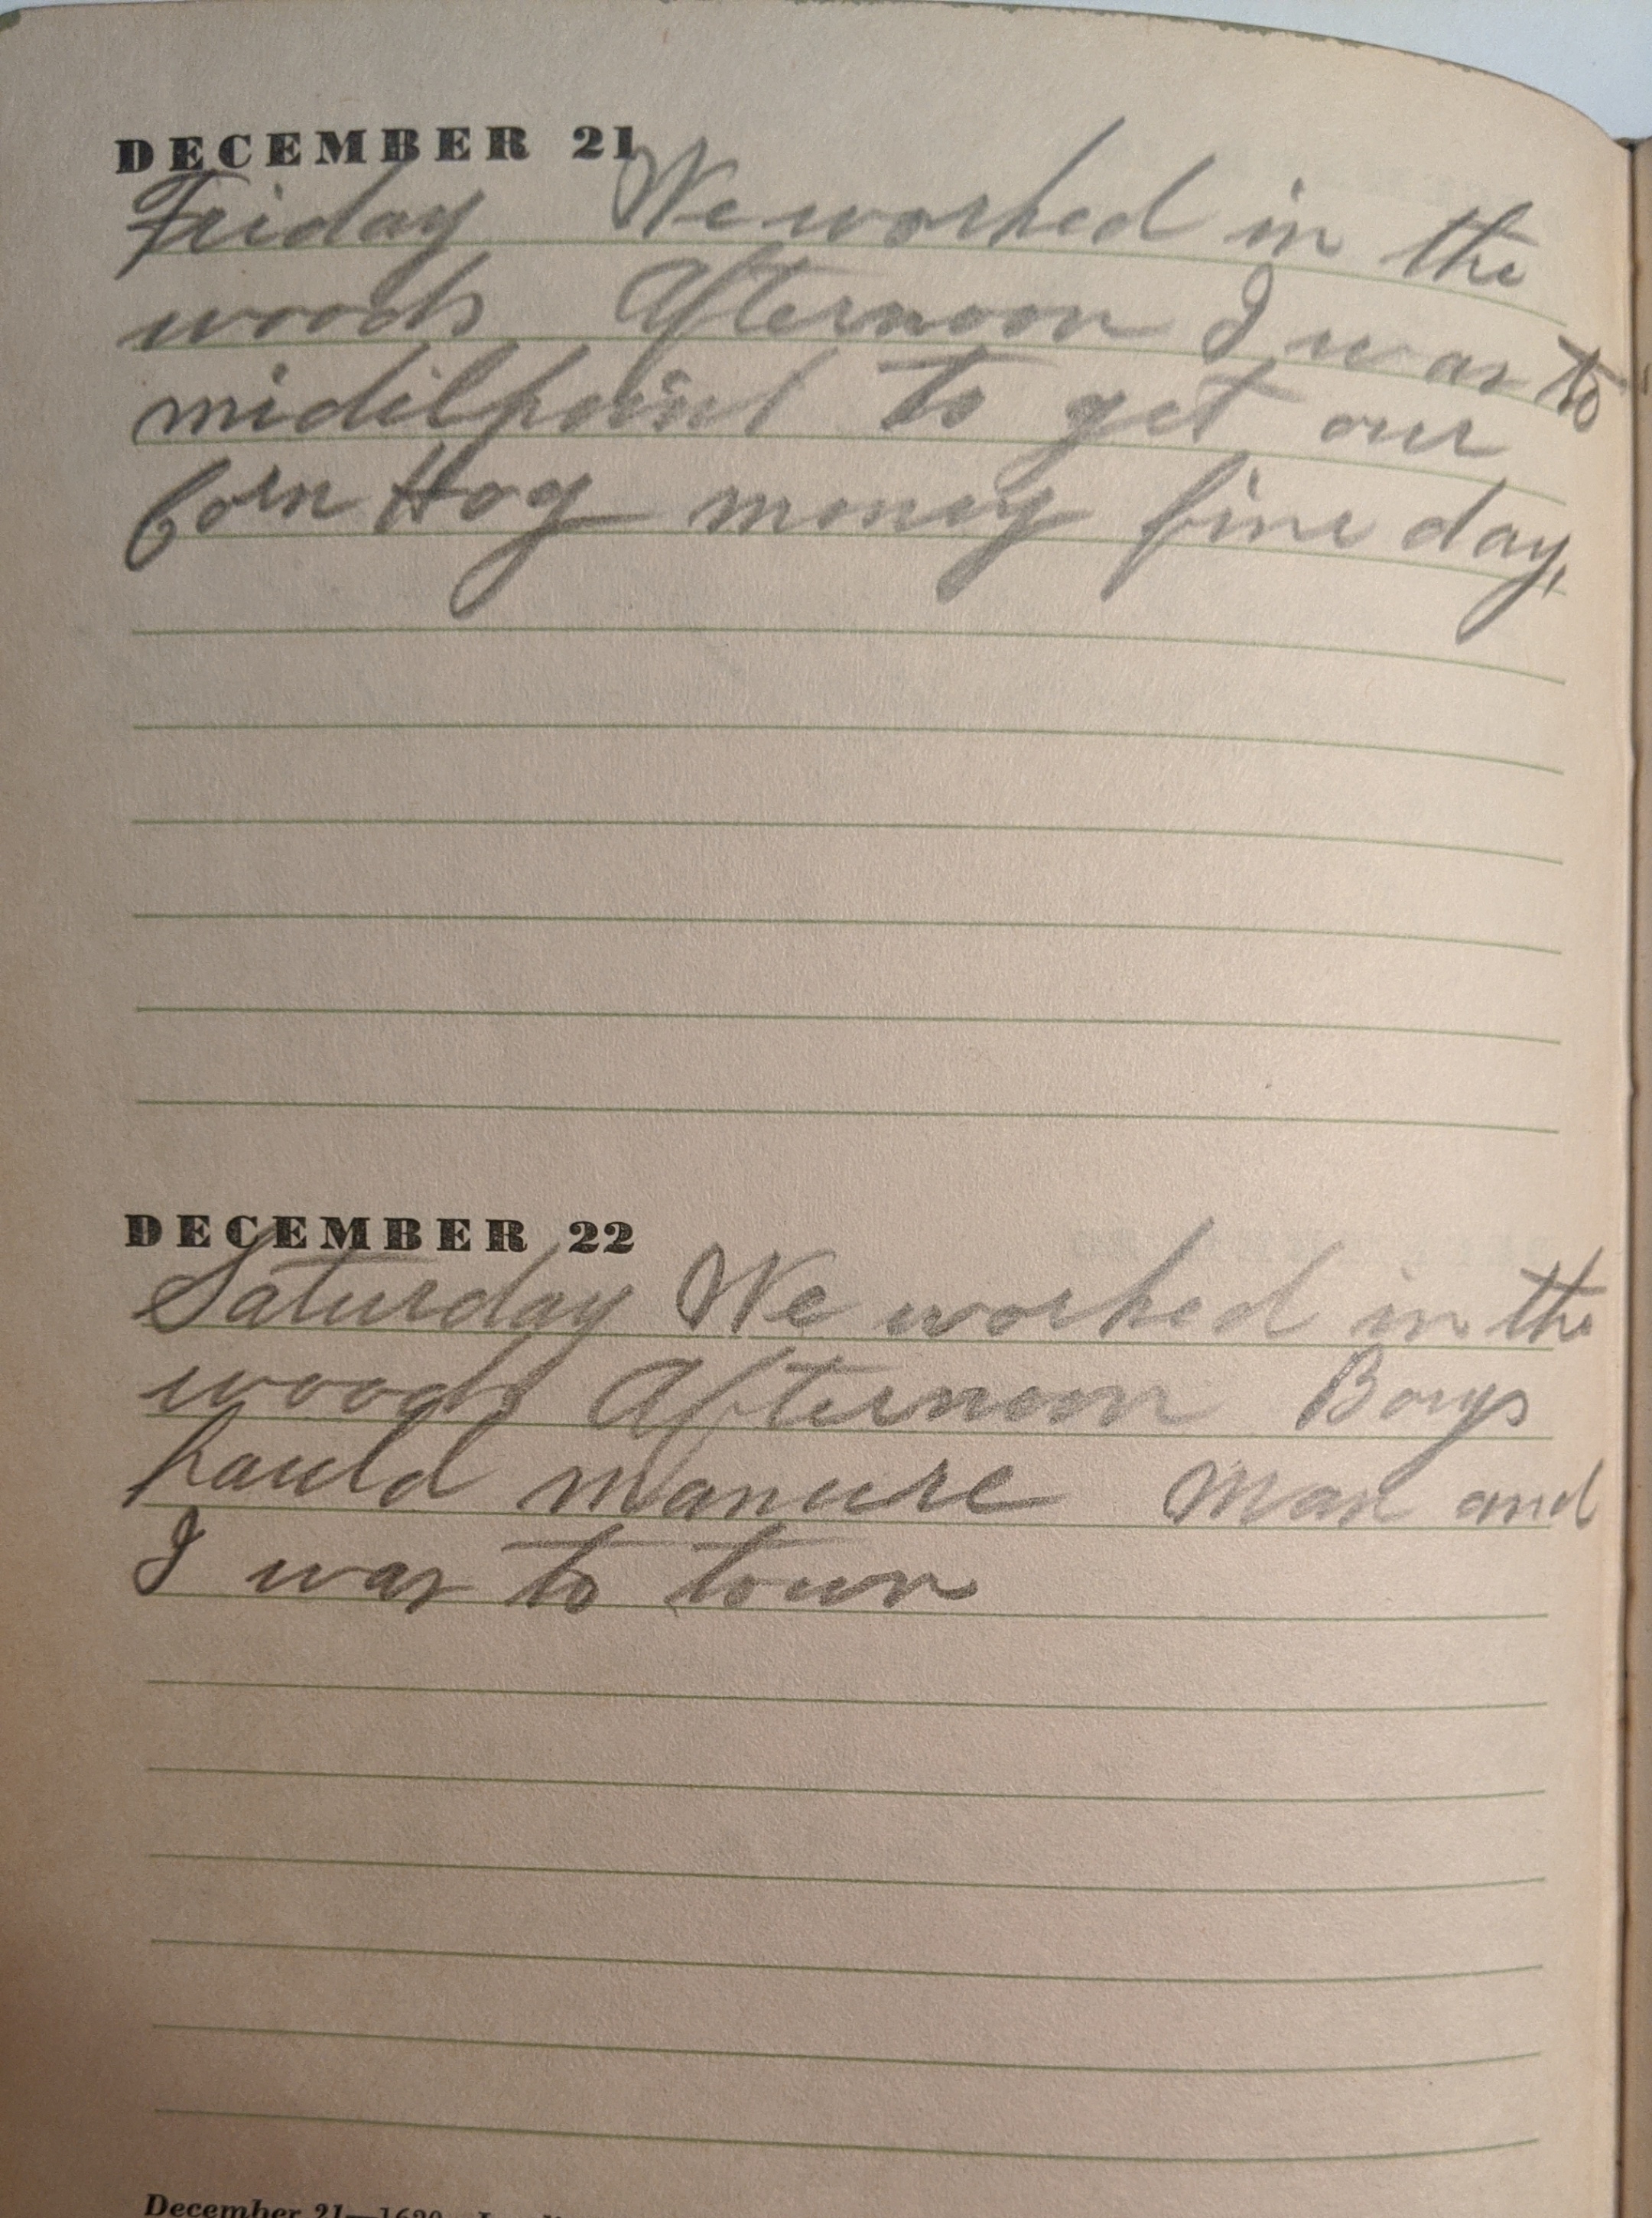 DECEMBER 21
Friday We worked in the
woods Afternoon I was to
midilpoint to get our
Corn Hog money fine day,
DECEMBER 22
Saturday We worked in the
woods Afternoon Boys
hauld manure Max and
I was to town
December 21—1620